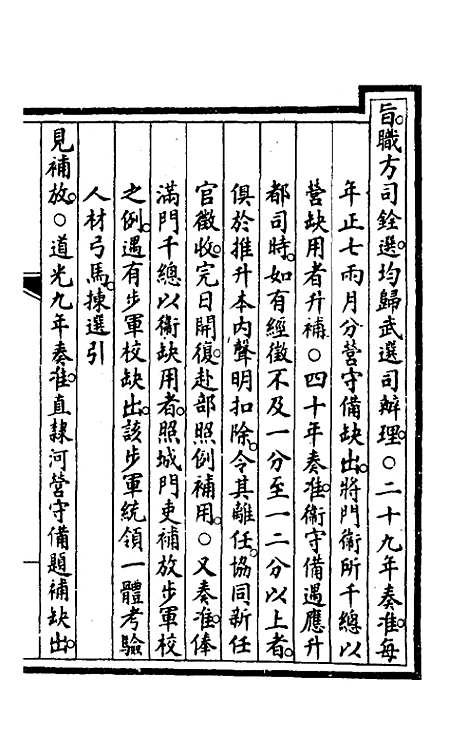 旨。職方司銓選。均歸武選司辦理。○二十九年奏准。每
年正七兩月分營守備缺出。將門衞所千總以
營缺用者升補。○四十年奏准。衞守備遇應升
都司時。如有經徵不及一分至一二分以上者。
俱於推升本內聲明扣除。令其離任。協同新任
官徵收。完日開復。赴部照例補用。○又奏准。俸
滿門千總以衞缺用者。照城門吏補放步軍校
之例。遇有步軍校缺出。該步軍統領一體考驗
人材弓馬。揀選引
見補放。○道光九年奏准。直隸河營守備題補缺出。